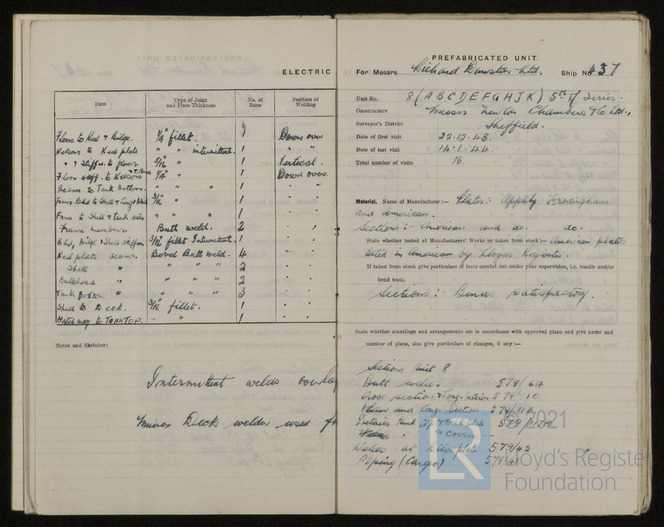 ELECTRIC
Date
Type of Joint
and Plate Thickness
No. of
Runs
Position of
Welding
Floors to Keel & Bilge. 1/4 fillet. Down over
Keelsons to Keel plate " " intermittent. 1 " "
" & Stiffrs. to floors 3/16 " 1 Vertical.
Floor 1/4" " 1 Down over.
Beams to Tank " " " 1
3/16 " 1
to Shell & Tank " " " 1
Frame Butt weld. 2
3/16 fillet Intermittent. 1
Keel plate seams. Bevel Butt weld. 4
Shell " " " " " 2
Bulkhead " " " " " 2
Tank " " " " 3
Shell to Deck. 3/16 fillet. 1
Hatchway to TANKTOP. " " 1
Notes and Sketches:
Intermittent welds overlap
Deck welder used
PREFABRICATED UNIT
For Messrs Richard Dunston Ltd. Ship No. 437
Unit No. 8 (A B C D E F G H J K) 5th of Series.
Constructors Messrs Newton Chambers & Co Ltd.,
Surveyor's District Sheffield.
Date of first visit 22.12.43.
Date of last visit 14.1.44.
Total number of visits 16.
Material. Name of Manufacturer:— Plates:- Appleby Frodingham
and American.
Sections:- American and do. do.
State whether tested at Manufacturers' Works or taken from stock:— American plates
tested in American by Lloyds Register.
If taken from stock give particulars of tests carried out under your supervision, i.e, tensile and/or
bend tests.
Sections:- Bends satisfactory.
State whether scantlings and arrangements are in accordance with approved plans and give name and
number of plans, also give particulars of changes, if any:—
Sections Unit 8
Butt welds 579/64
Cross section & Long. 579/10
and Long. Section 579/11
Details Tank 579
"
Welds at Bilge plate 579/43
Piping (Cargo) 579
© 2021
LR
Lloyd's Register
Foundation